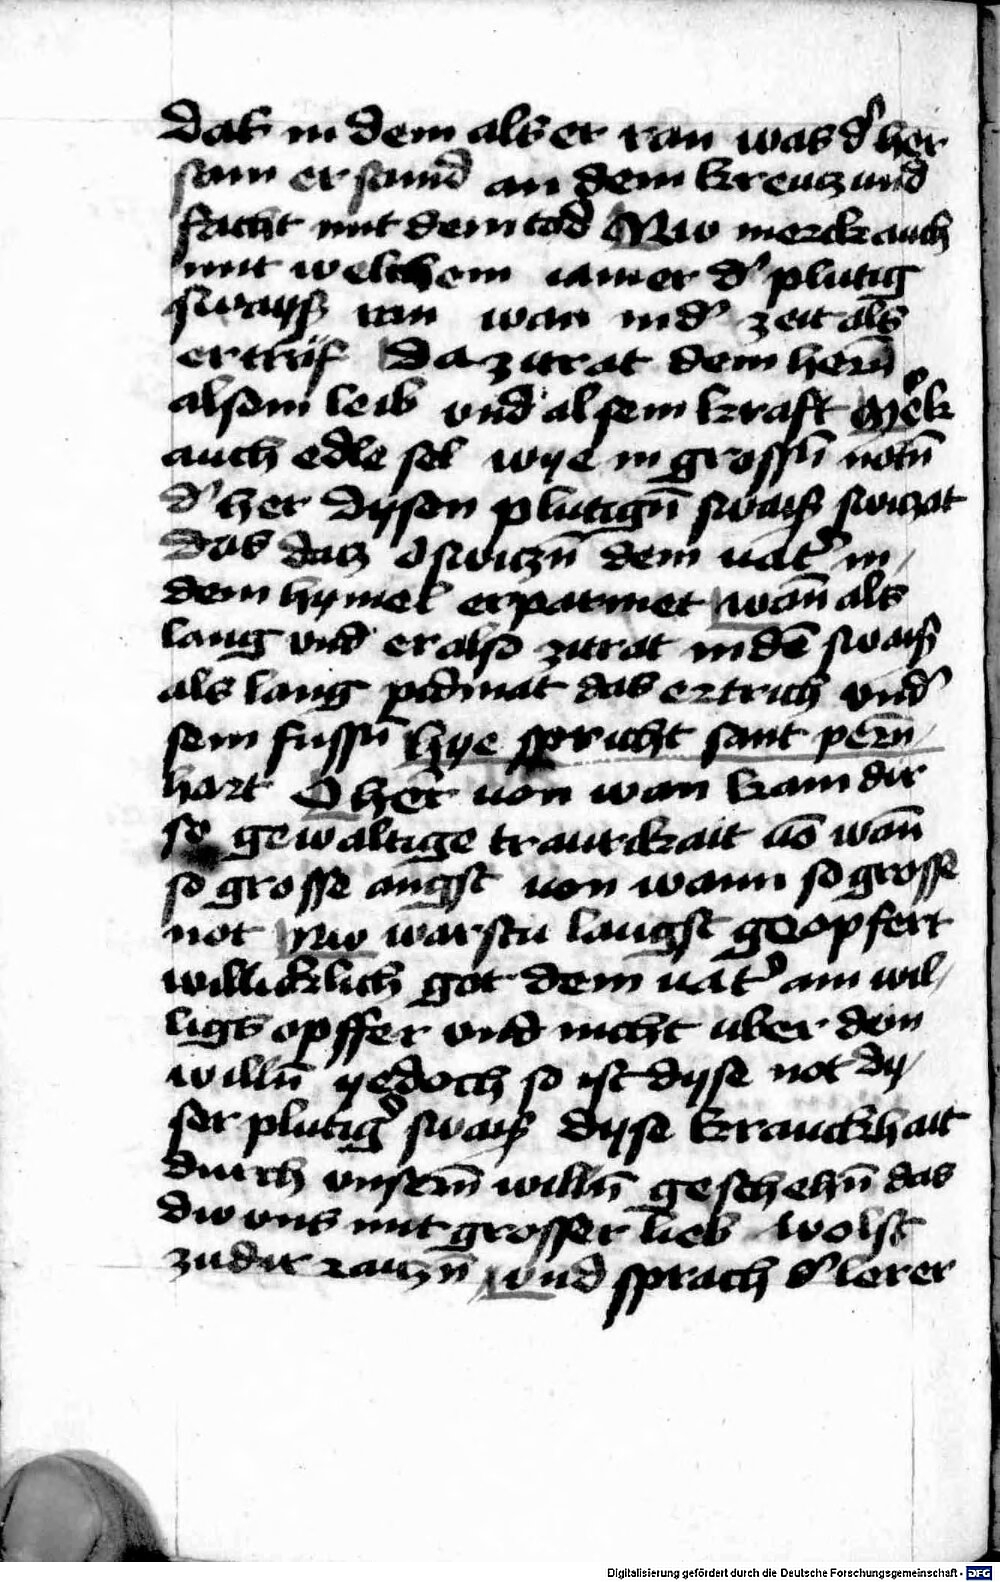 das in dem als er ran was d' her
sam er stund an dem kreucz und
facht mit dem tod Nw merck auch
mit welchem iamer d' plutig
swayß ran wan in d' zeit als
er trüf Da zitrat dem hern̄
als sein leib vnd al sein kraft M'ck
auch edle sel wye in grossn̄ nötn̄
d' her dysen plutign̄ swaiß swiczat
das dacz swiczn̄ dem uat' in
dem hymel erparmet wan̄ als
lang vnd er also zitrat in dē swaiß
als lang pidmat das ertrich vnd'
sein fussn̄ hye spricht sant pern̄
hart O her von wan kam dir
so gewaltige traurickait uō wan̄
so grosse angst von wann so grosse
not Nw warstu langst geopfert
willicklich got dem uat' ain wil
ligs opffer vnd nicht uber dein
willn̄ yedoch so ist dyse not dy
ser plutig' swaiß dyse kranckhait
durch unsern̄ willn̄ geschehn̄ das
dw vns mit grosser lieb wolst
zu dir raiczn̄ vnd sprach d' lerer
Digitalisierung gefördert durch die Deutsche Forschungsgemeinschaft - DFG